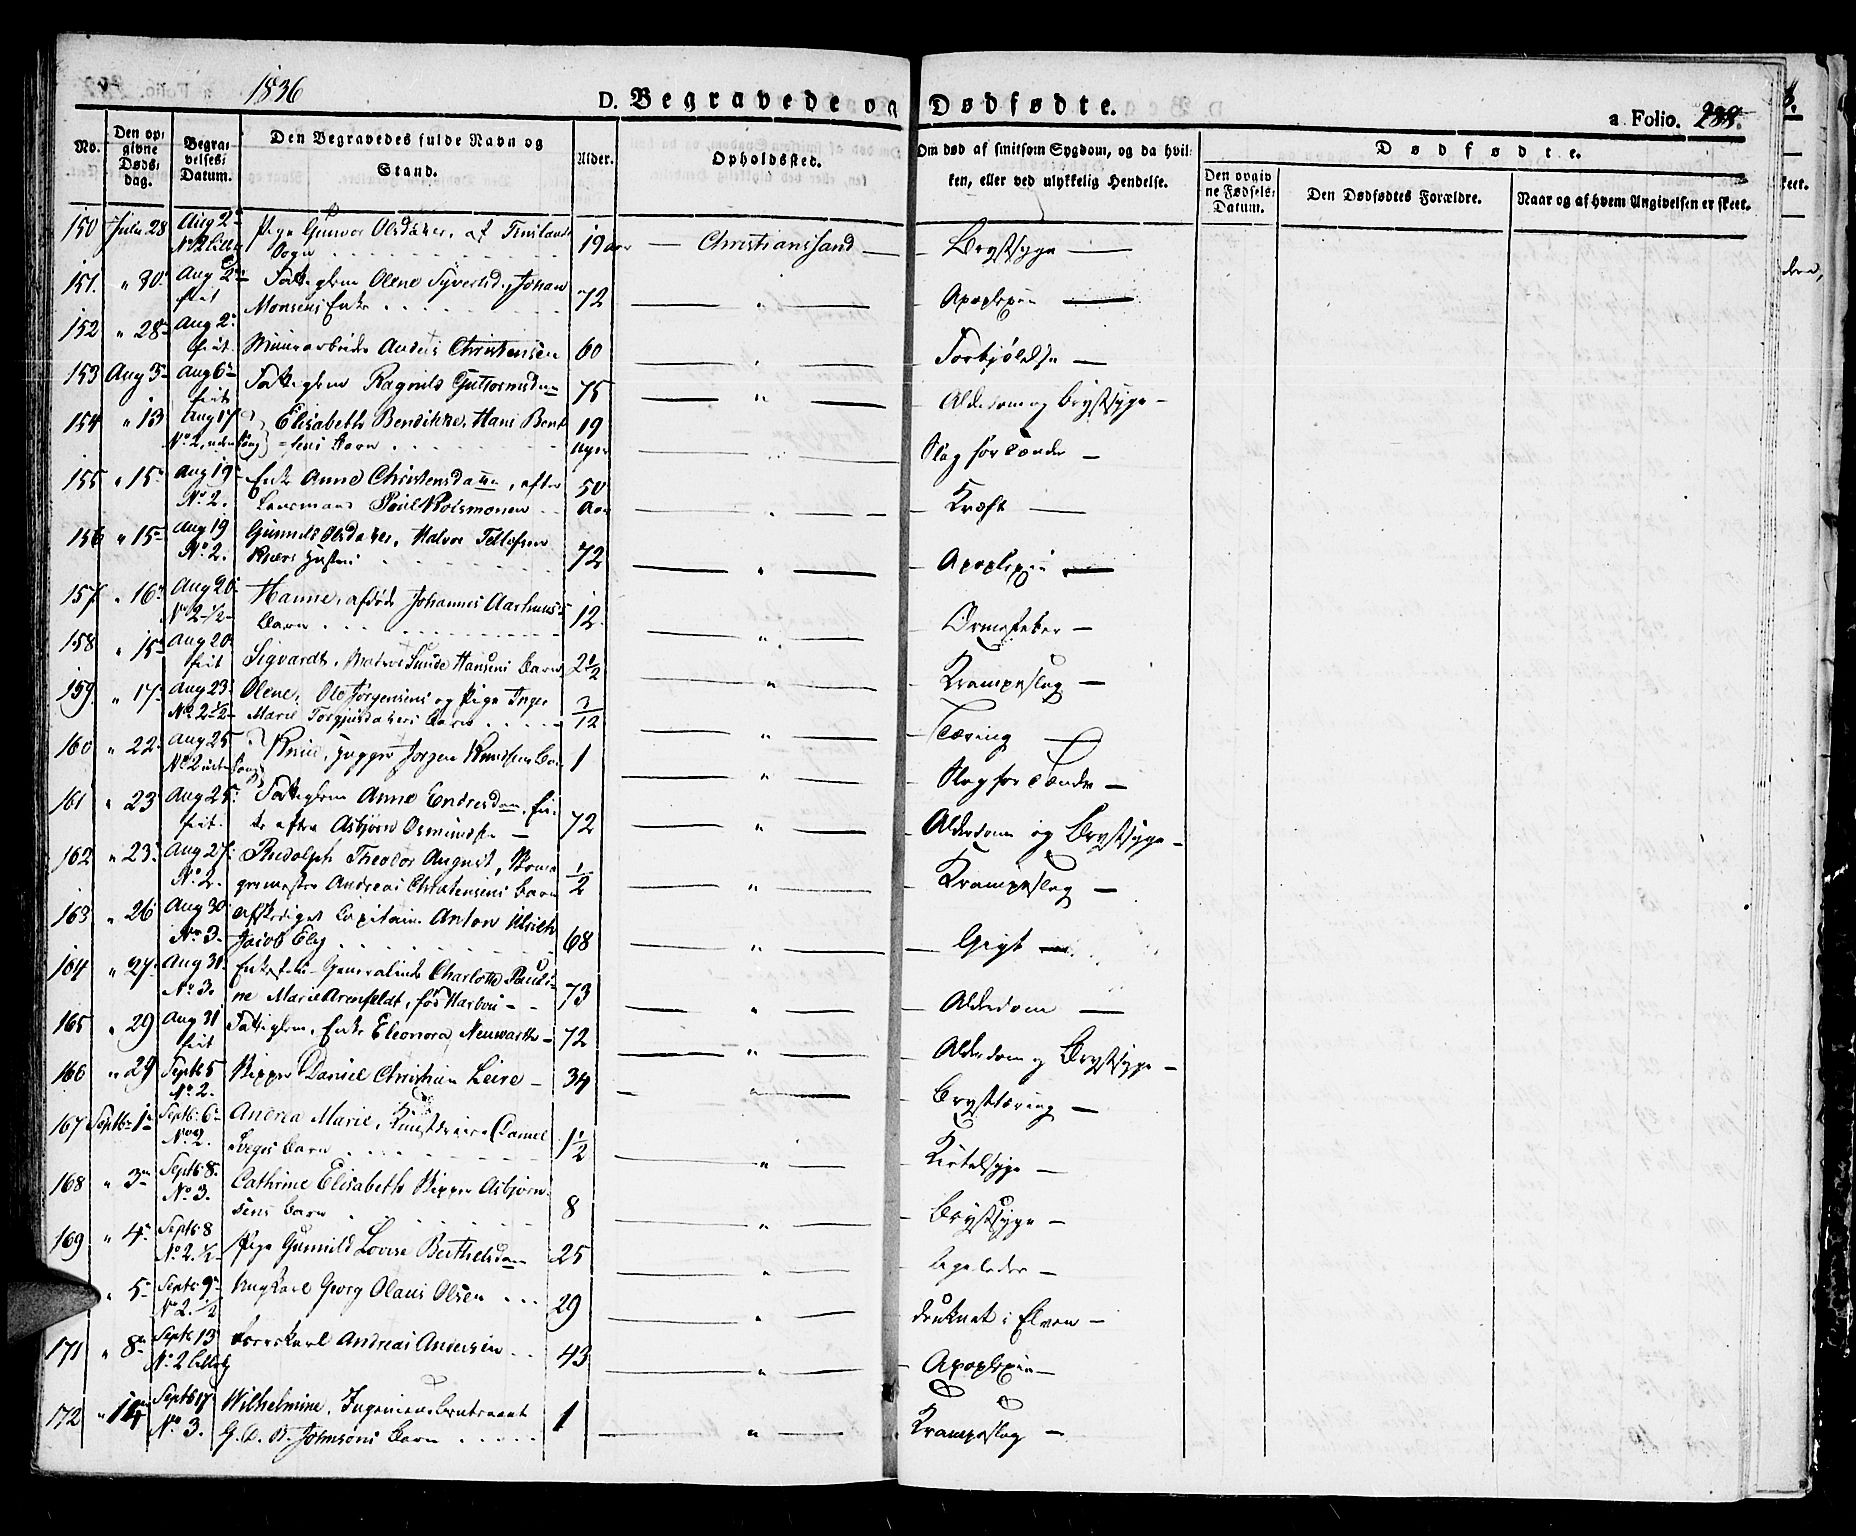 1836
D. Begravede og Dødfødte.
a Folio. 288.
No.
Den opgivne Dødsdag.
Begravelses Datum.
Den Begravedes fulde Navn og Stand.
Alder.
Opholdssted.
Om død af smitsom Sygdom, og da hvilken, eller ved ulykkelig Hendelse.
Dødfødte.
Den opgivne Fødsels Datum.
Den Dødfødtes Forældre.
Naar og af hvem Angivelsen er skeet.
150 Julii 28 Aug 2 Pige Gunvor Olsdatter, af
Sogn 19 aar — Christianssand — Brystsyge —
151. " 30. Aug 2 Fattiglem Olene Syvertsd., Johan
frit Monsens Enke 72 — " — Apoplexie —
152 " 28 Aug 2
frit Muurarbeider Anders Christensen 60 — " — Forkjølelse —
153 Aug 3 Aug 6 Fattiglem Ragnild Guttormsd 75
frit — " — Alderdom og Brystsyge —
154 " 13 Aug 17 Elisabeth Bendikke, Hans Bent 19
No 2, uden Sang =sens Barn uger — " — Slag for Tænder —
155 " 15 Aug 19 Enke Anne Christensda, efter 50
No. 2. Lensmand Poul Rolsmonen Aar — " — Kræft —
156 " 15 Aug 19 Gunnild Olsdatter, Halvor Tellefsen
No. 2. Kjærs Hustru 72 — " — Apoplexie —
157 " 16 Aug 20 Hanne, afdøde Johannes Aarhuus
No 2 1/2 Barn 12 — " — Ormefeber —
158 " 15 Aug 20
frit Sigvardt, Matros Hansens Barn 2 1/2 — " — Krampeslag —
159 " 17 Aug 23 Olene, Ole Jørgensens og Pige Inger
No. 2 1/2 Marie Torgjusdatters Barn 3/12 — " — Tæring —
160 " 22 Aug 25 Knud, Jørgen Knudsens Ba 1
No 2 uden Sang — " — Slag for Tænder —
161 " 23 Aug 25 Fattiglem Anne Endresda, En=
frit. ke efter Asbjørn Osmundse 72 — " — Alderdom og Brystsyge —
162 " 23 Aug 27 Rudolph Theodor August, Skoma
No. 2. germester Andreas Christensens Barn 1/2 — " — Krampeslag —
163 " 26 Aug 30 afskediget Capitain Anton Ulrich
No. 3. Jacob Ely 68 — " — Gigt —
164 " 27 Aug 31 Enkefru Generalinde Charlotte Pauli=
No. 3. ne Marie Arenfeldt, fød Harbou 73 — " — Alderdom —
165 " 29 Aug 31 Fattiglem, Enke Eleonora Neuwarth 72
frit — " — Alderdom og Brystsyge —
166 " 29 Septb 5 Daniel Christian Leire 34
No. 2. — " — Brysttæring —
167 Septbr 1 Septb: 6 Andrea Marie, Daniel
No. 2. Barn 1 1/2 — " — Kirtelsyge —
168 " 3 Septb 8. Cathrine Elisabeth Asbjørn
No. 3. sens Barn 8 — " — Brystsyge —
169 " 4 Septb 8
No. 2. 1/2 Pige Gunnild Lovise Berthelsda 25 — " —
" 5 Septb: 9 Ungkarl Georg Olaus Olsen
No. 2. 1/2 29 — " — druknet i Elven —
171 " 8 Septb 13 Andreas Andersen
No. 2 43 — " — Apoplexie —
172 " 14 Septb 17 Wilhelmine, Ingenieur Lieutenant
No 3. G. A. B. Johnsons Barn 1 — " — Krampeslag —